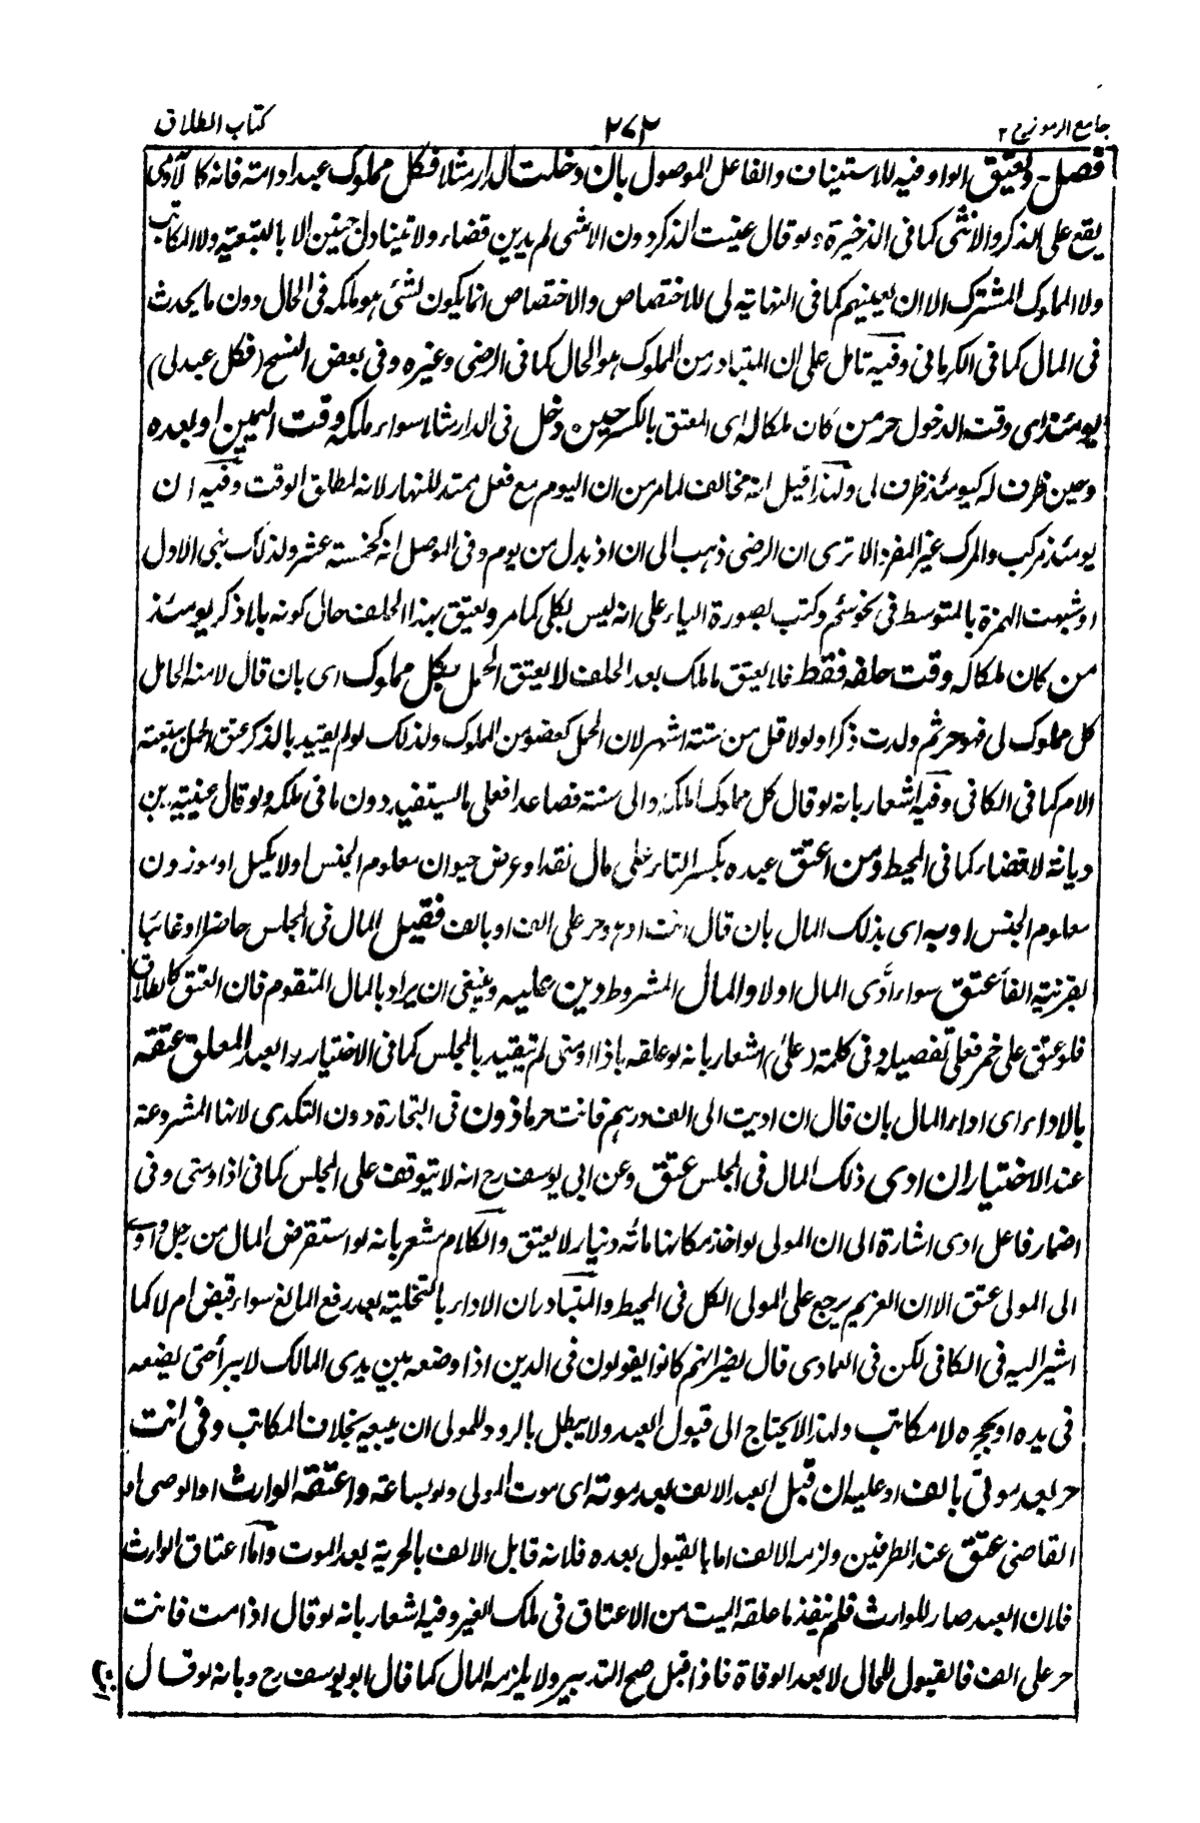 جامع الرموز ج ٢
٢٧٢
كتاب الطلاق
فصل ويعتق الواو فيه للاستيناف والفاعل الموصول بان دخلت الدار مثلا فكل مملوك عبد او امة فانه كالآدمى
يقع على الذكر والانثى كما فى الذخيرة ولو قال عنيت الذكر دون الانثى لم يدين قضاء ولا يتناول جنين الا بالتبعية ولا المكاتب
ولا المملوك المشترك الا ان يعينهم كما فى النهاية لى للاختصاص والاختصاص انما يكون لشئ هو ملكه فى الحال دون ما يحدث
فى المال كما فى الكرمانى وفيه تامل على ان المتبادر من المملوك هو الحال كما فى الرضى وغيره وفى بعض النسخ (فكل عبد لى)
يومئذ اى وقت الدخول حر من كان ملكا له اى المعتق بالكسر حين دخل فى الدار مثلا سواء ملكه وقت اليمين او بعده
وحين ظرف له كيومئذ ظرف لى ولهذا قيل انه مخالف لما مر من ان اليوم مع فعل ممتد للنهار لانه لمطلق الوقت وفيه ان
يومئذ مركب والمركب غير المفرد الا ترى ان الرضى ذهب الى ان اذ بدل من يوم وفى الموصل انه كخمسة عشر ولذلك بنى الاول
او شبهت الهمزة بالمتوسط فى نحو سئم وكتب بصورة الياء على انه ليس بكلى كما مر ويعتق بهذا الحلف حال كونه بلا ذكر يومئذ
من كان ملكا له وقت حلفه فقط فلا يعتق ما ملك بعد الحلف لا يعتق الحمل بكل مملوك اى بان قال لامته الحامل
كل مملوك لى فهو حر ثم ولدت ذكرا ولو لاقل من ستة اشهر لان الحمل كعضو من المملوك ولذلك لو لم يقيد بالذكر عتق الحمل بتبعية
الام كما فى الكافى وفيه اشعار بانه لو قال كل مملوك املكه والى سنة فصاعدا فعلى ما يستفيد دون ما فى ملكه ولو قال عنيته دين
ديانة لا قضاء كما فى المحيط ومن اعتق عبده بكسر التاء على مال نقد او عرض حيوان معلوم الجنس او لا بكيل او موزون
معلوم الجنس او به اى بذلك المال بان قال انت حر على الف او بالف فقبل المال فى المجلس حاضرا او غائبا
بقرينة الفاء عتق سواء أدى المال او لا والمال المشروط دين عليه وينبغى ان يراد بالمال المتقوم فان العتق كالطلاق
فلو عتق على خمر فعلى تفصيله وفى كلمة (على) اشعار بانه لو علقه باذا او متى لم يتقيد بالمجلس كما فى الاختيار والعبد المعلق عتقه
بالاداء اى اداء المال بان قال ان اديت الى الف درهم فانت حر ماذون فى التجارة دون التكدى لانها المشروعة
عند الاختيار ان ادى ذلك المال فى المجلس عتق وعن ابى يوسف رح انه لا يتوقف على المجلس كما فى اذا ومتى وفى
اضمار فاعل ادى اشارة الى ان المولى لو اخذ مكانها مائة دينار لا يعتق والكلام مشعر بانه لو استقرض المال من رجل وادى
الى المولى عتق الا ان الغريم يرجع على المولى الكل فى المحيط والمتبادر ان الاداء بالتخلية بعد رفع المانع سواء قبض ام لا كما
اشير اليه فى الكافى لكن فى العمادى قال بعضهم كانوا يقولون فى الدين اذا وضعه بين يدى المالك لا يبرأ حتى يضعه
فى يده او حجره لا مكاتب ولهذا لا يحتاج الى قبول العبد ولا يبطل بالرد وللمولى ان يبيعه بخلاف المكاتب وفى انت
حر بعد موتى بالف او عليه ان قبل العبد الالف بعد موته اى موت المولى ولو بساعة واعتقه الوارث او الوصى او
القاضى عتق عند الطرفين ولزمه الالف اما بالقبول بعده فلانه قابل الالف بالحرية بعد الموت واما اعتاق الوارث
فلان العبد صار للوارث فلم ينفذ ما علقه الميت من الاعتاق فى ملك الغير وفيه اشعار بانه لو قال اذا مت فانت
حر على الف فالقبول للحال لا بعد الوفاة فاذا قبل صح التدبير ولا يلزمه المال كما قال ابو يوسف رح وبانه لو قال